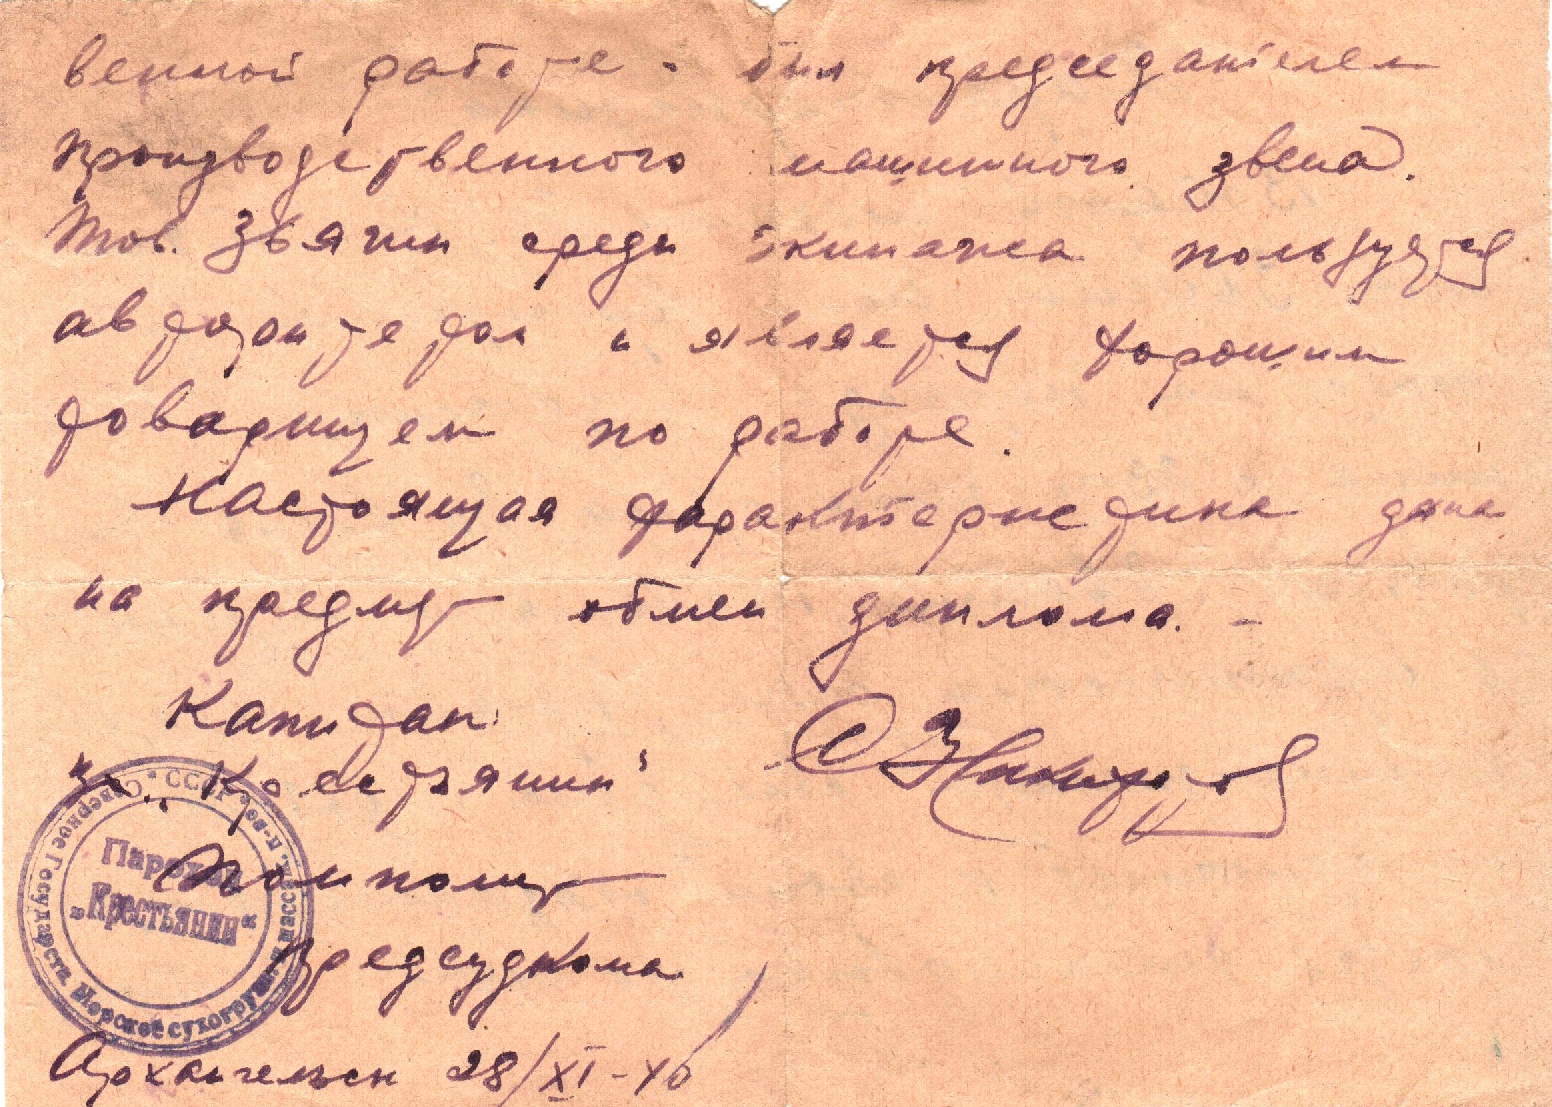 венной работе. был председателем
производственного машинного звена.
Тов. Зьяти среди экипажа пользуется
авторитетом и является хорошим
товарищем по работе.
Настоящая характеристика дана
на предмет обмен диплома. –
Капитан
п/х „Крестьянин"
Помполит
Предсудкома
Архангельск 28/XI-40
Пароход
„Крестьянин"
СССР Северное Государств. Морское сухогрузн. и пасс.